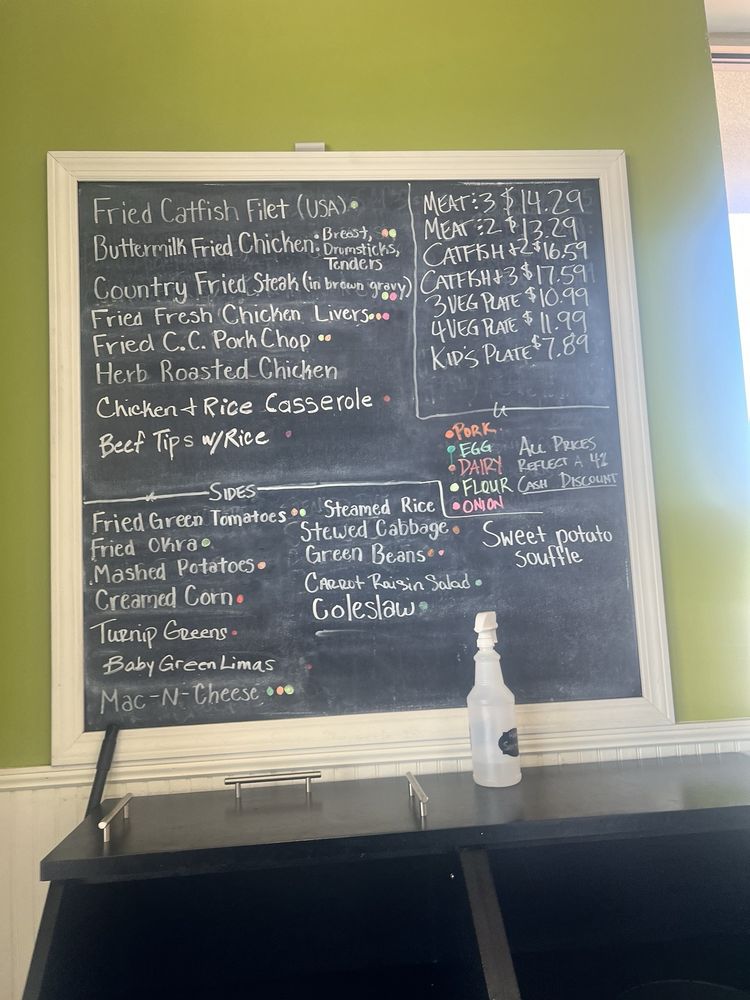 Fried Catfish Filet (USA)
Buttermilk Fried Chicken: Breast,
Drumsticks,
Tenders
Country Fried Steak (in brown gravy)
Fried Fresh Chicken Livers
Fried C.C. Pork Chop
Herb Roasted Chicken
Chicken + Rice Casserole
Beef Tips w/Rice
MEAT:3 $14.29
MEAT:2 $13.29
CATFISH+2 $16.59
CATFISH+3 $17.59
3 VEG PLATE $10.99
4 VEG PLATE $11.99
KID'S PLATE $7.89
PORK
EGG
DAIRY
FLOUR
ONION
ALL PRICES
REFLECT A 4%
CASH DISCOUNT
SIDES
Fried Green Tomatoes
Fried Okra
Mashed Potatoes
Creamed Corn
Turnip Greens
Baby Green Limas
Mac-N-Cheese
Steamed Rice
Stewed Cabbage
Green Beans
Carrot Raisin Salad
Coleslaw
Sweet potato
souffle